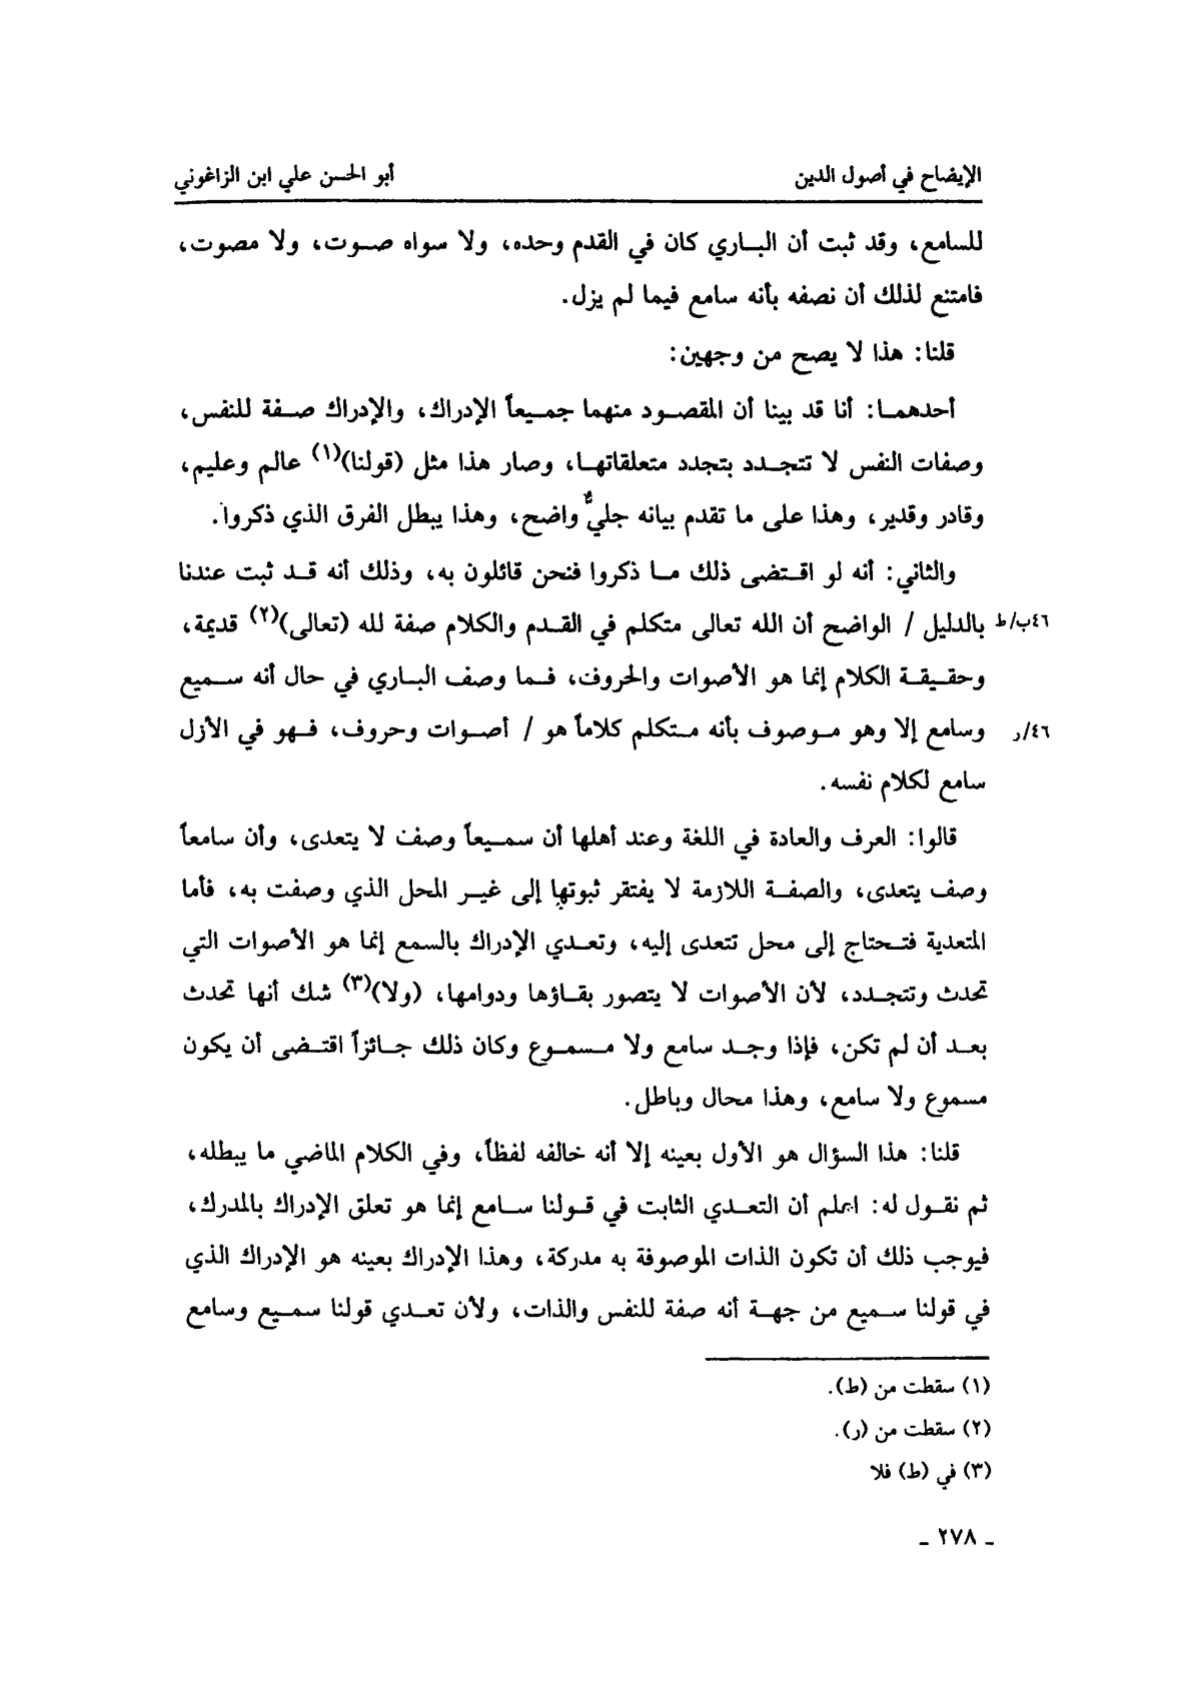 الإيضاح في أصول الدين أبو الحسن علي ابن الزاغوني
للسامع، وقد ثبت أن الباري كان في القدم وحده، ولا سواه صوت، ولا مصوت،
فامتنع لذلك أن نصفه بأنه سامع فيما لم يزل.
قلنا: هذا لا يصح من وجهين:
أحدهما: أنا قد بينا أن المقصود منهما جميعاً الإدراك، والإدراك صفة للنفس،
وصفات النفس لا تتجدد بتجدد متعلقاتها، وصار هذا مثل (قولنا)(١) عالم وعليم،
وقادر وقدير، وهذا على ما تقدم بيانه جليٌّ واضح، وهذا يبطل الفرق الذي ذكروا.
والثاني: أنه لو اقتضى ذلك ما ذكروا فنحن قائلون به، وذلك أنه قد ثبت عندنا
٤٦ب/ط بالدليل / الواضح أن الله تعالى متكلم في القدم والكلام صفة لله (تعالى)(٢) قديمة،
وحقيقة الكلام إنما هو الأصوات والحروف، فما وصف الباري في حال أنه سميع
٤٦/ر وسامع إلا وهو موصوف بأنه متكلم كلاماً هو / أصوات وحروف، فهو في الأزل
سامع لكلام نفسه.
قالوا: العرف والعادة في اللغة وعند أهلها أن سميعاً وصف لا يتعدى، وأن سامعاً
وصف يتعدى، والصفة اللازمة لا يفتقر ثبوتها إلى غير المحل الذي وصفت به، فأما
المتعدية فتحتاج إلى محل تتعدى إليه، وتعدي الإدراك بالسمع إنما هو الأصوات التي
تحدث وتتجدد، لأن الأصوات لا يتصور بقاؤها ودوامها، (ولا)(٣) شك أنها تحدث
بعد أن لم تكن، فإذا وجد سامع ولا مسموع وكان ذلك جائزاً اقتضى أن يكون
مسموع ولا سامع، وهذا محال وباطل.
قلنا: هذا السؤال هو الأول بعينه إلا أنه خالفه لفظاً، وفي الكلام الماضي ما يبطله،
ثم نقول له: اعلم أن التعدي الثابت في قولنا سامع إنما هو تعلق الإدراك بالمدرك،
فيوجب ذلك أن تكون الذات الموصوفة به مدركة، وهذا الإدراك بعينه هو الإدراك الذي
في قولنا سميع من جهة أنه صفة للنفس والذات، ولأن تعدي قولنا سميع وسامع
(١) سقطت من (ط).
(٢) سقطت من (ر).
(٣) في (ط) فلا
ـ ٢٧٨ ـ